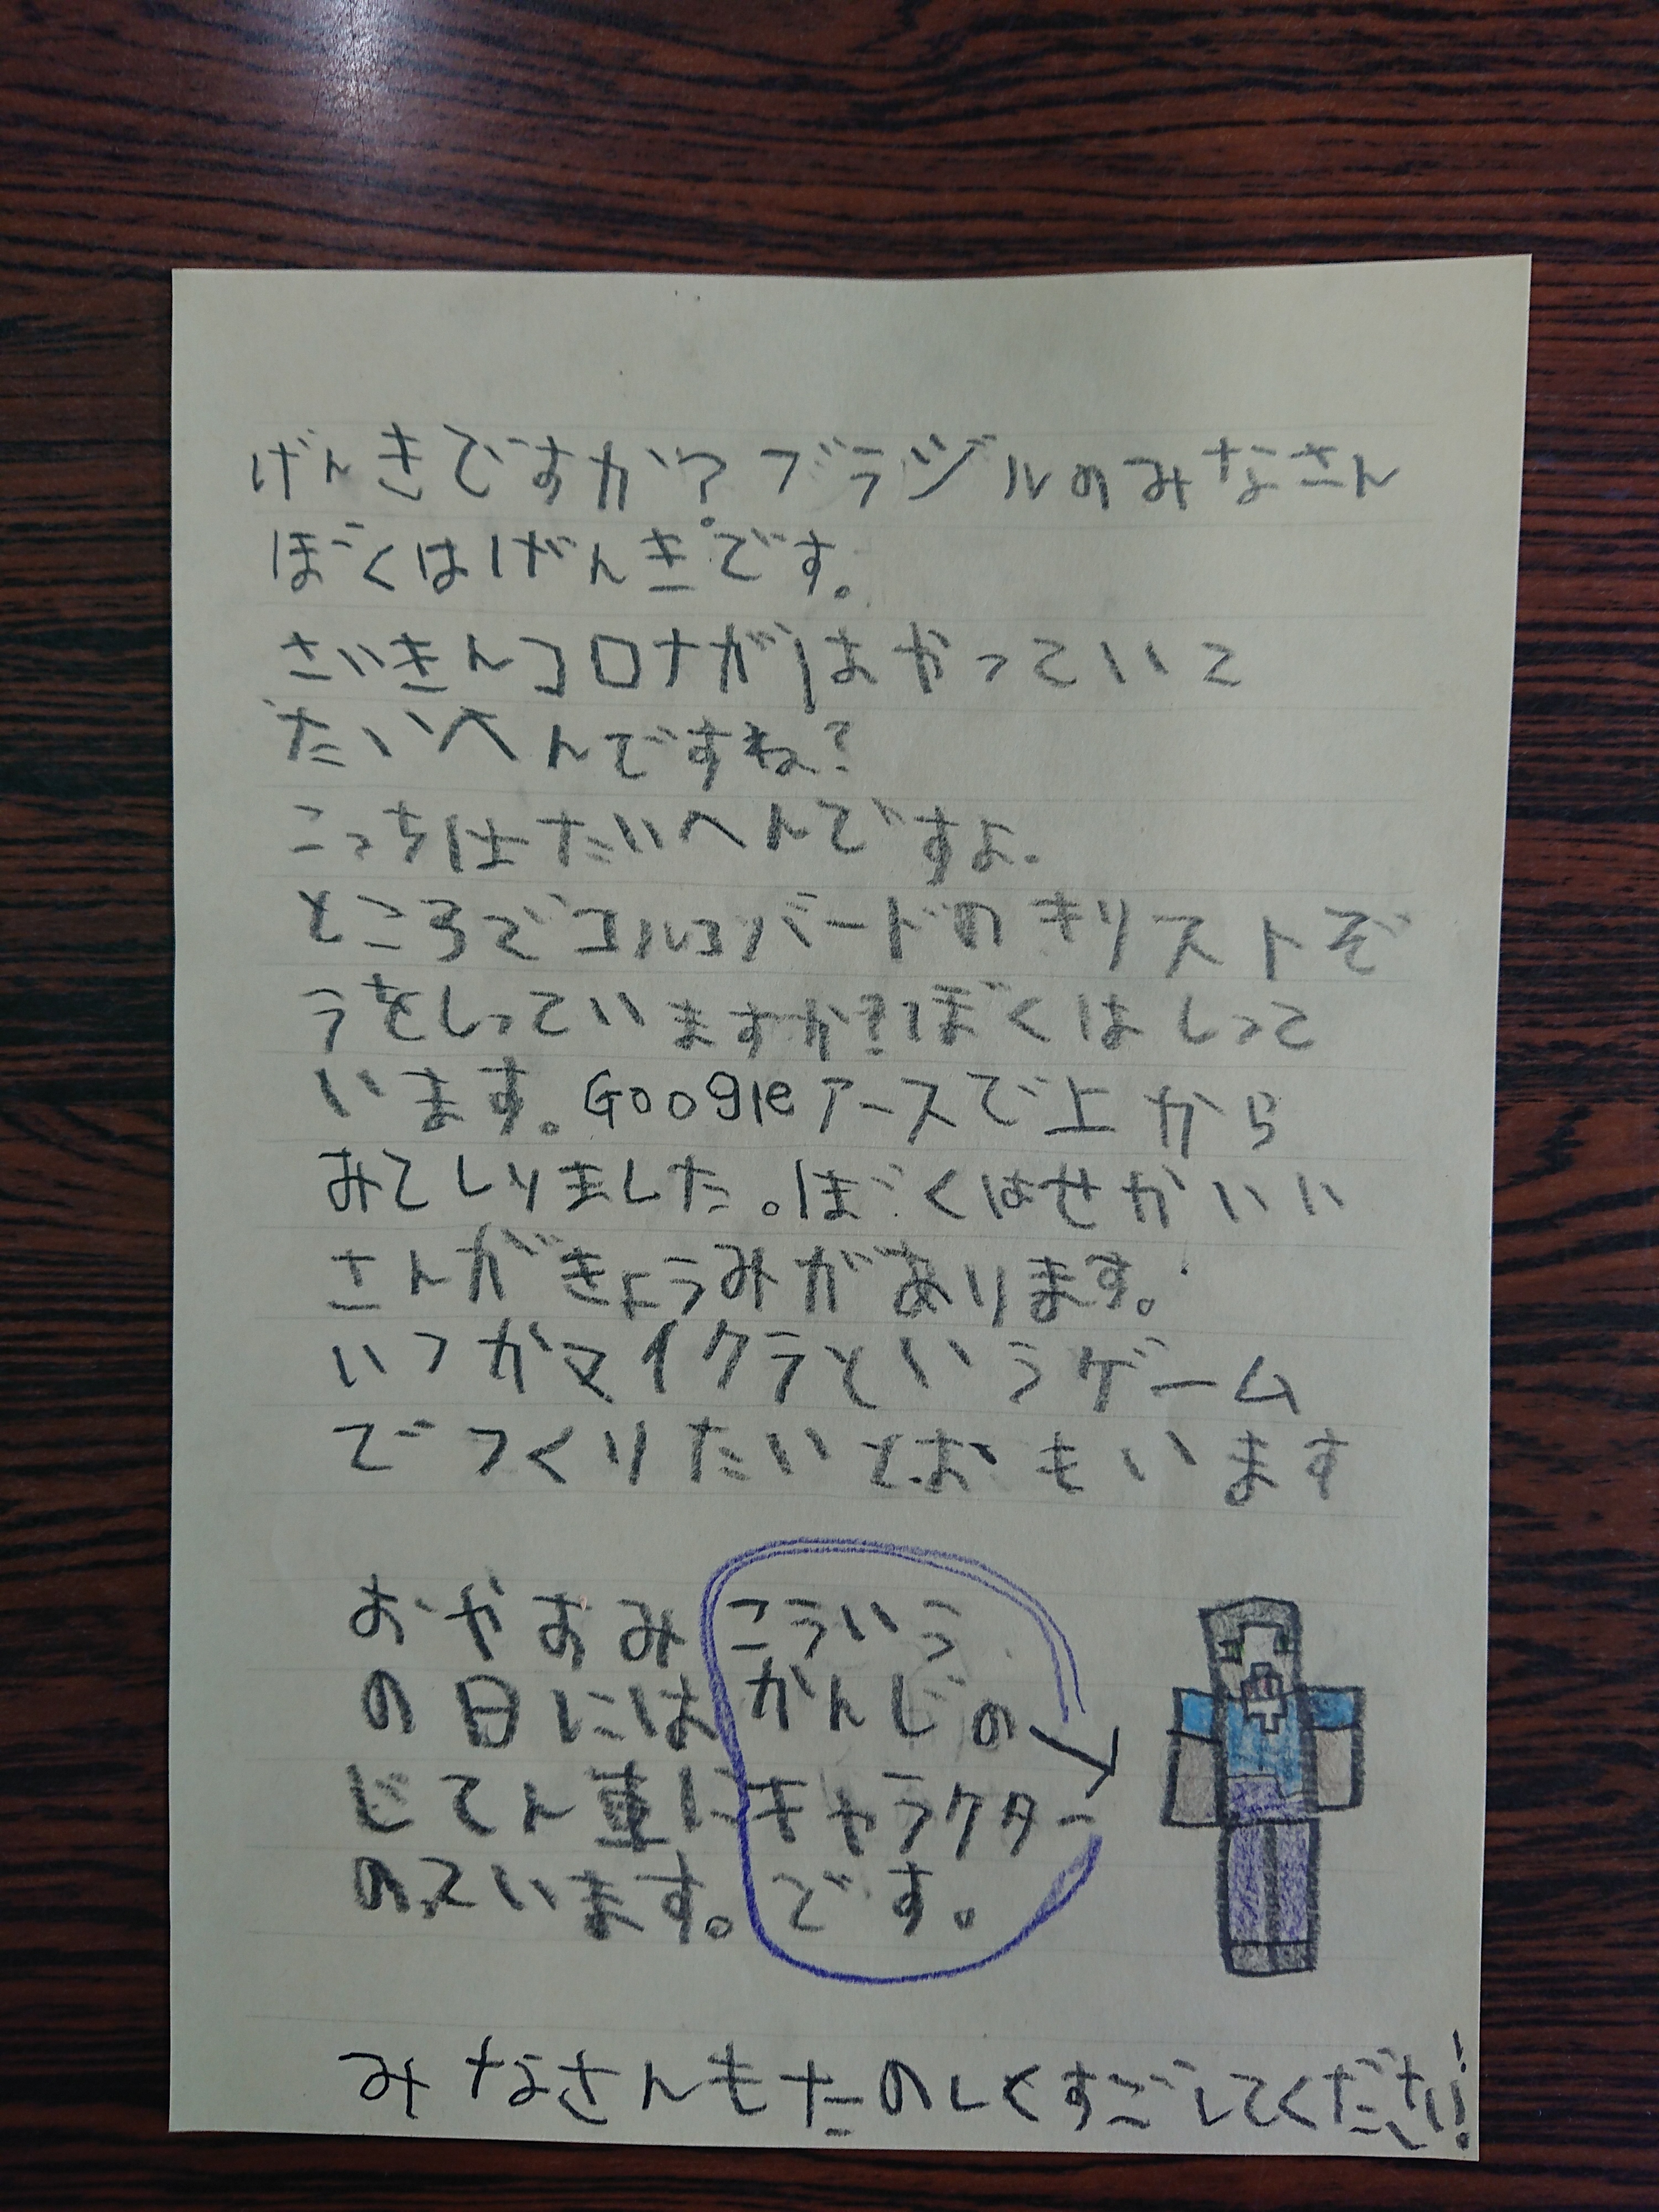 げんきですか?ブラジルのみなさん
ぼくはげんきです。
さいきんコロナがはやっていて
たいへんですね?
こっちはたいへんですよ。
ところでコルコバードのきリストぞ
うをしっていますか?ぼくはしって
います。Googleアースで上から
みてしりました。ぼくはせかいい
さんがきょうみがあります。
いつかマイクラというゲーム
でつくりたいとおもいます
おやすみ
の日には
じてん車に
のっています。
こういう
かんじの
キャラクター
です。
みなさんもたのしくすごしてください!